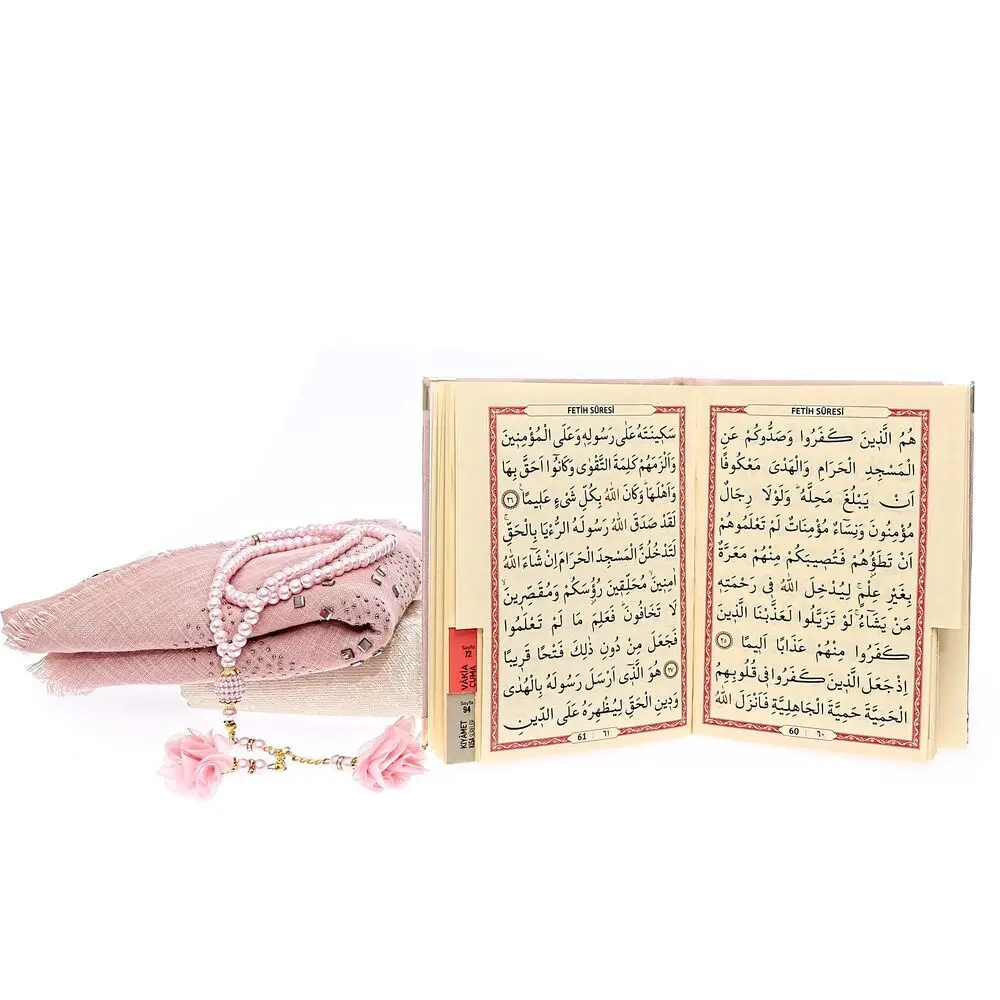 FETİH SÛRESİ
هُمُ الَّذِينَ كَفَرُوا وَصَدُّوكُمْ عَنِ
الْمَسْجِدِ الْحَرَامِ وَالْهَدْىَ مَعْكُوفًا
اَنْ يَبْلُغَ مَحِلَّهُ وَلَوْلَا رِجَالٌ
مُؤْمِنُونَ وَنِسَٓاءٌ مُؤْمِنَاتٌ لَمْ تَعْلَمُوهُمْ
اَنْ تَطَؤُ۫هُمْ فَتُصِيبَكُمْ مِنْهُمْ مَعَرَّةٌ
بِغَيْرِ عِلْمٍ لِيُدْخِلَ اللّٰهُ فِى رَحْمَتِهِ
مَنْ يَشَٓاءُ لَوْ تَزَيَّلُوا لَعَذَّبْنَا الَّذِينَ
كَفَرُوا مِنْهُمْ عَذَابًا اَلِيمًا ٢٥
اِذْ جَعَلَ الَّذِينَ كَفَرُوا فِى قُلُوبِهِمُ
الْحَمِيَّةَ حَمِيَّةَ الْجَاهِلِيَّةِ فَاَنْزَلَ اللّٰهُ
60 | ٦٠
FETİH SÛRESİ
سَكِينَتَهُ عَلٰى رَسُولِهِ وَعَلَى الْمُؤْمِنِينَ
وَاَلْزَمَهُمْ كَلِمَةَ التَّقْوٰى وَكَانُٓوا اَحَقَّ بِهَا
وَاَهْلَهَا وَكَانَ اللّٰهُ بِكُلِّ شَىْءٍ عَلِيمًا ٢٦
لَقَدْ صَدَقَ اللّٰهُ رَسُولَهُ الرُّءْيَا بِالْحَقِّ
لَتَدْخُلُنَّ الْمَسْجِدَ الْحَرَامَ اِنْ شَٓاءَ اللّٰهُ
اٰمِنِينَ مُحَلِّقِينَ رُؤُسَكُمْ وَمُقَصِّرِينَ
لَا تَخَافُونَ فَعَلِمَ مَا لَمْ تَعْلَمُوا
فَجَعَلَ مِنْ دُونِ ذٰلِكَ فَتْحًا قَرِيبًا
٢٧ هُوَ الَّذِٓى اَرْسَلَ رَسُولَهُ بِالْهُدٰى
وَدِينِ الْحَقِّ لِيُظْهِرَهُ عَلَى الدِّينِ
61 | ٦١
Sayfa
72
VÂKIA
CUMA
Sayfa
94
KIYÂMET
KISA SURELER